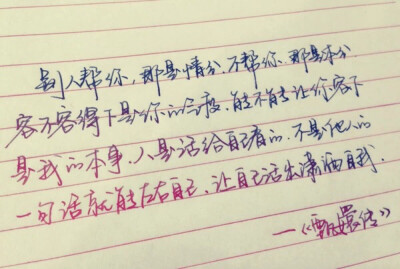 别人帮你,那是情分,不帮你,那是本分
容不容得下是你的气度,能不能让你容下
是我的本事,人是活给自己看的,不是他人的
一句话就能左右自己,让自己活出潇洒自我.
—《甄嬛传》